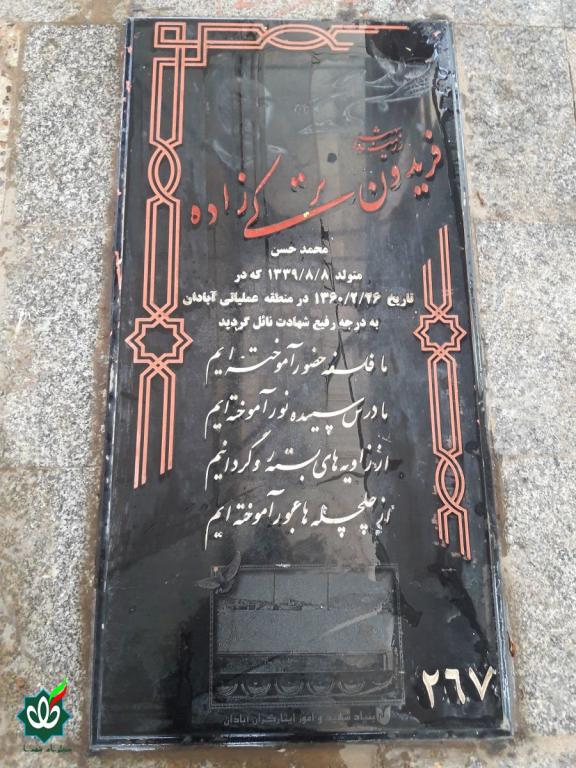 شهید
فریدون برتکی زاده
محمد حسن
متولد ۱۳۳۹/۸/۸ که در
تاریخ ۱۳۶۰/۲/۲۶ در منطقه عملیاتی آبادان
به درجه رفیع شهادت نائل گردید
ما فلسفه حضور آموخته ایم
ما درس سپیده نور آموخته ایم
از زاویه های بسته و
از چلچله ها عبور آموخته ایم
۲۶۷
بنیاد شهید و امور ایثارگران آبادان